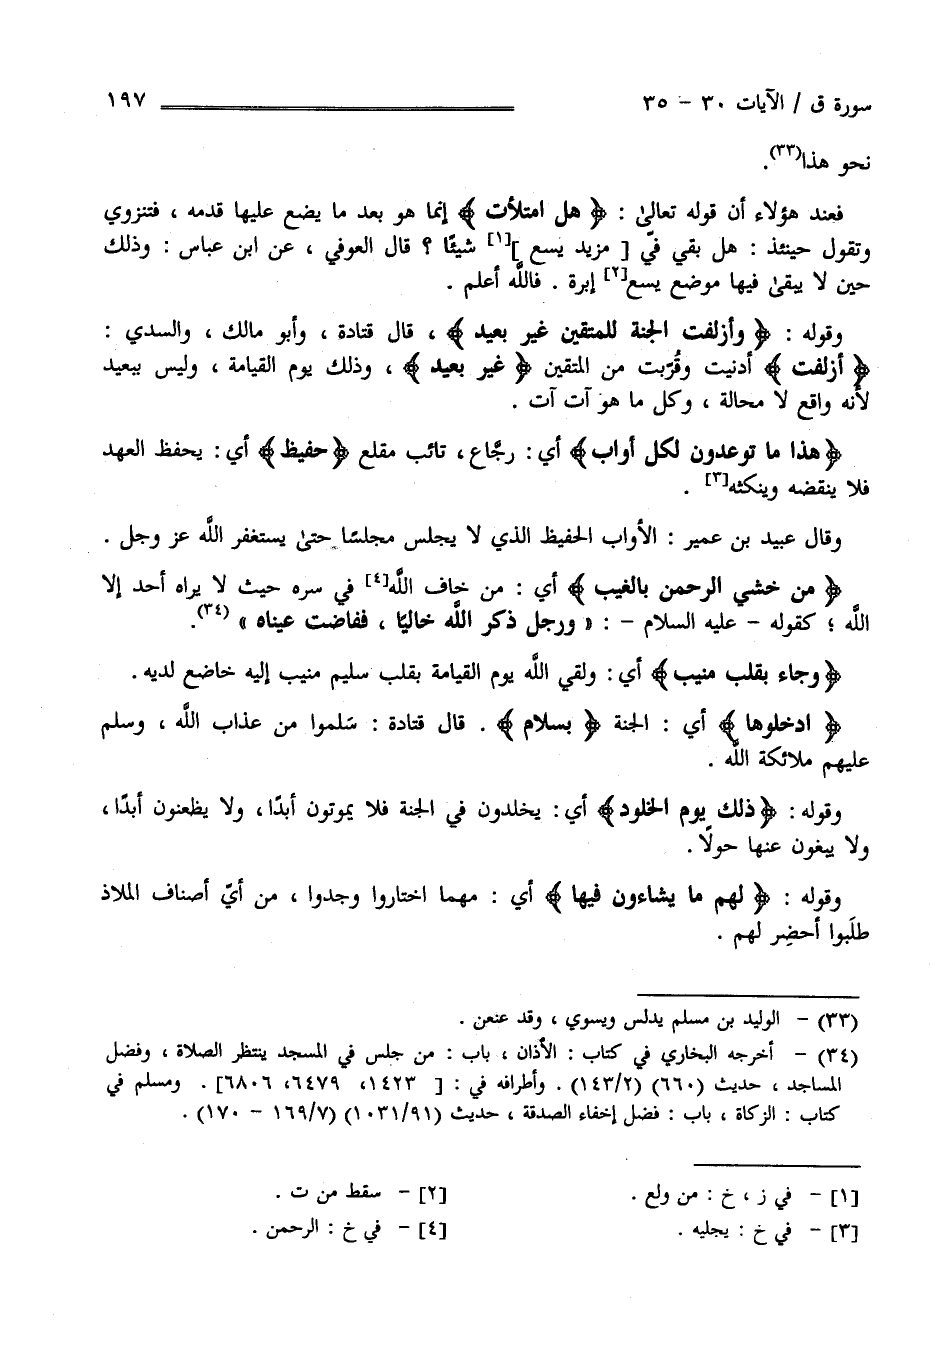 سورة ق / الآيات ٣٠ - ٣٥ ١٩٧
نحو هذا(٣٣).
فعند هؤلاء أن قوله تعالىٰ : ﴿ هل امتلأت ﴾ إنما هو بعد ما يضع عليها قدمه ، فتنزوي
وتقول حينئذ : هل بقي فيّ [ مزيد يسع ][١] شيئًا ؟ قال العوفي ، عن ابن عباس : وذلك
حين لا يبقىٰ فيها موضع يسع[٢] إبرة . فاللَّه أعلم .
وقوله : ﴿ وأزلفت الجنة للمتقين غير بعيد ﴾ ، قال قتادة ، وأبو مالك ، والسدي :
﴿ أزلفت ﴾ أدنيت وقُرّبت من المتقين ﴿ غير بعيد ﴾ ، وذلك يوم القيامة ، وليس ببعيد
لأنه واقع لا محالة ، وكل ما هو آت آت .
﴿هذا ما توعدون لكل أواب﴾ أي: رجَّاع، تائب مقلع ﴿حفيظ﴾ أي: يحفظ العهد
فلا ينقضه وينكثه[٣] .
وقال عبيد بن عمير : الأواب الحفيظ الذي لا يجلس مجلسًا حتىٰ يستغفر اللَّه عز وجل .
﴿ من خشي الرحمن بالغيب ﴾ أي : من خاف اللَّه[٤] في سره حيث لا يراه أحد إلا
اللَّه ؛ كقوله - عليه السلام - : « ورجل ذكر اللَّه خاليًا ، ففاضت عيناه » (٣٤).
﴿وجاء بقلب منيب﴾ أي: ولقي اللَّه يوم القيامة بقلب سليم منيب إليه خاضع لديه.
﴿ ادخلوها ﴾ أي : الجنة ﴿ بسلام ﴾ . قال قتادة : سَلموا من عذاب اللَّه ، وسلم
عليهم ملائكة اللَّه .
وقوله: ﴿ذلك يوم الخلود﴾ أي: يخلدون في الجنة فلا يموتون أبدًا، ولا يظعنون أبدًا،
ولا يبغون عنها حولًا.
وقوله : ﴿ لهم ما يشاءون فيها ﴾ أي : مهما اختاروا وجدوا ، من أيّ أصناف الملاذ
طلَبوا أحضِر لهم .
(٣٣) - الوليد بن مسلم يدلس ويسوي ، وقد عنعن .
(٣٤) - أخرجه البخاري في كتاب : الأذان ، باب : من جلس في المسجد ينتظر الصلاة ، وفضل
المساجد ، حديث (٦٦٠) (١٤٣/٢) . وأطرافه في : [ ١٤٢٣، ٦٤٧٩، ٦٨٠٦] . ومسلم في
كتاب : الزكاة ، باب : فضل إخفاء الصدقة ، حديث (١٠٣١/٩١) (١٦٩/٧ - ١٧٠) .
[١] - في ز ، خ : من ولع . [٢] - سقط من ت .
[٣] - في خ : يجليه . [٤] - في خ : الرحمن .